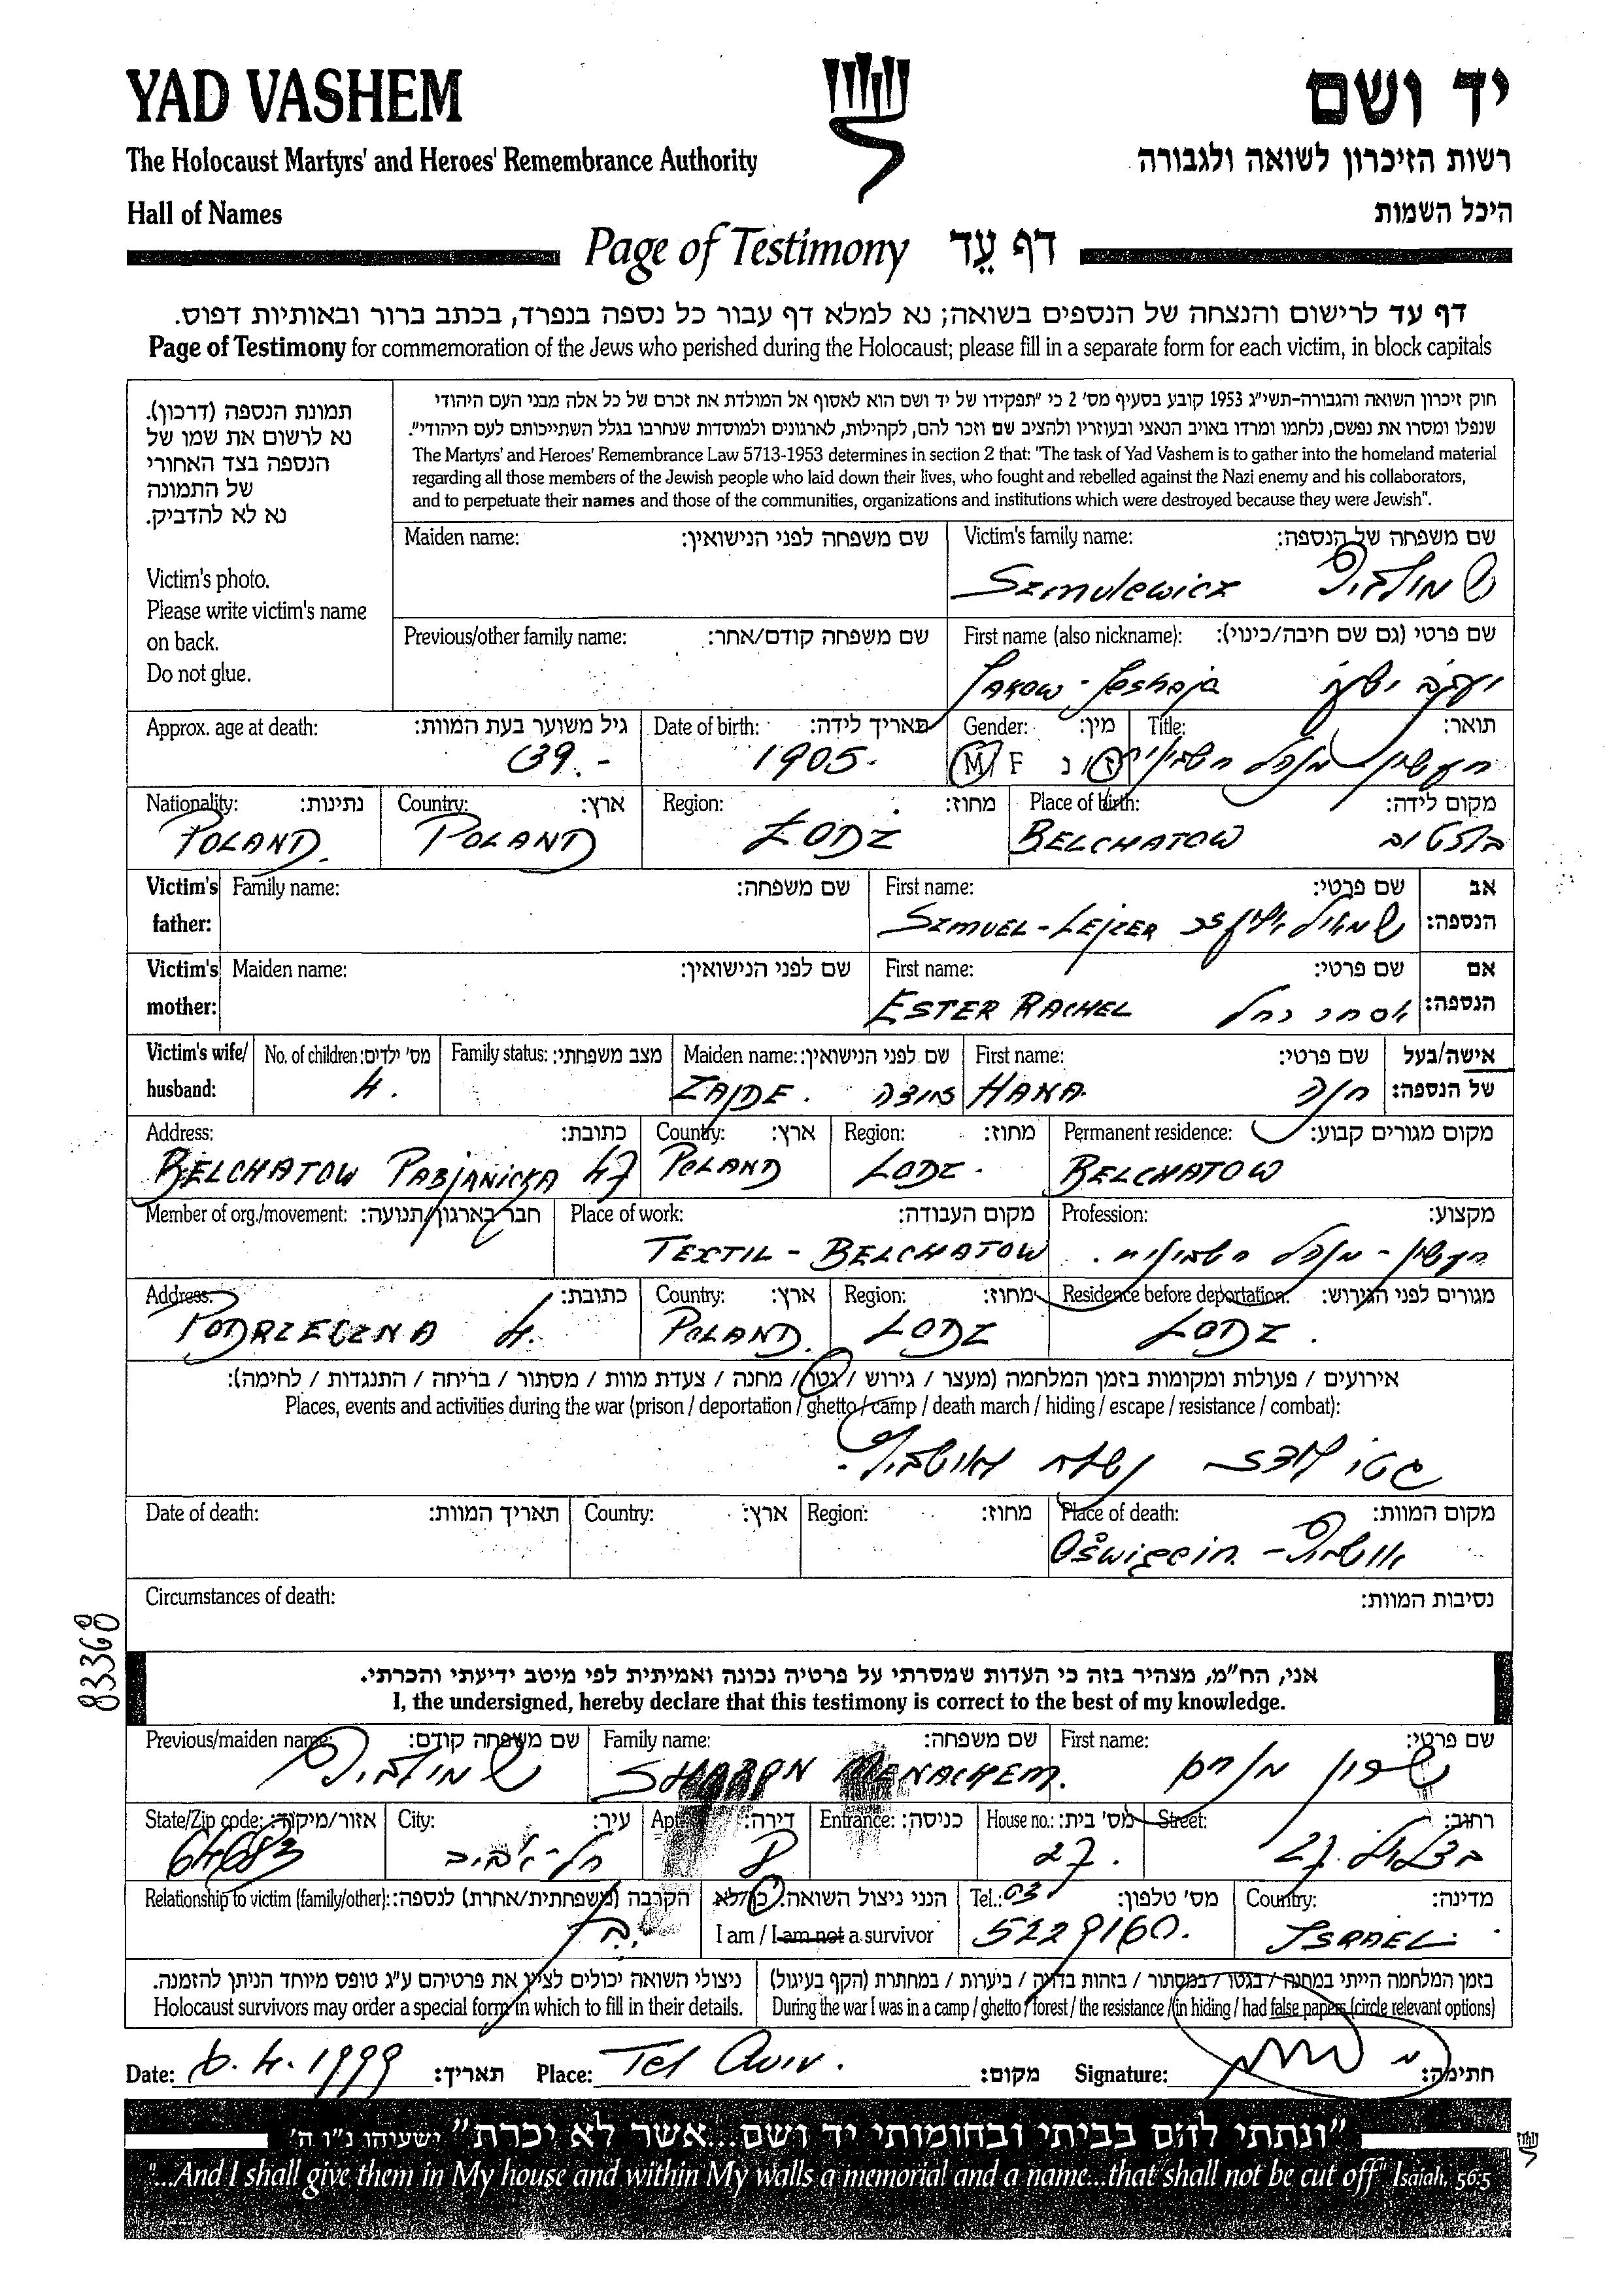 YAD VASHEM
יד ושם
The Holocaust Martyrs' and Heroes' Remembrance Authority
רשות הזיכרון לשואה ולגבורה
Hall of Names
היכל השמות
Page of Testimony דף עֵד
דף עד לרישום והנצחה של הנספים בשואה; נא למלא דף עבור כל נספה בנפרד, בכתב ברור ובאותיות דפוס.
Page of Testimony for commemoration of the Jews who perished during the Holocaust; please fill in a separate form for each victim, in block capitals
תמונת הנספה (דרכון).
נא לרשום את שמו של
הנספה בצד האחורי
של התמונה
נא לא להדביק.
Victim's photo.
Please write victim's name
on back.
Do not glue.
חוק זיכרון השואה והגבורה-תשי"ג 1953 קובע בסעיף מס' 2 כי "תפקידו של יד ושם הוא לאסוף אל המולדת את זכרם של כל אלה מבני העם היהודי
שנפלו ומסרו את נפשם, נלחמו ומרדו באויב הנאצי ובעוזריו ולהציב שם וזכר להם, לקהילות, לארגונים ולמוסדות שנחרבו בגלל השתייכותם לעם היהודי".
The Martyrs' and Heroes' Remembrance Law 5713-1953 determines in section 2 that: "The task of Yad Vashem is to gather into the homeland material
regarding all those members of the Jewish people who laid down their lives, who fought and rebelled against the Nazi enemy and his collaborators,
and to perpetuate their names and those of the communities, organizations and institutions which were destroyed because they were Jewish".
Maiden name: שם משפחה לפני הנישואין: Victim's family name: שם משפחה של הנספה:
Szmulewicz שמולביץ
Previous/other family name: שם משפחה קודם/אחר: First name (also nickname): שם פרטי (גם שם חיבה/כינוי):
Jakow - Jeshaja יעקב ישעיה
Approx. age at death: גיל משוער בעת המוות: Date of birth: תאריך לידה: Gender: מין: Title: תואר:
39.- 1905- M/F ז/נ
Nationality: נתינות: Country: ארץ: Region: מחוז: Place of birth: מקום לידה:
POLAND. POLAND ŁODŹ BELCHATOW בלחטוב
Victim's father: Family name: שם משפחה: First name: שם פרטי: אב הנספה:
SZMUEL - LEJZER
Victim's mother: Maiden name: שם לפני הנישואין: First name: שם פרטי: אם הנספה:
ESTER RACHEL אסתר רחל
Victim's wife/ husband: No. of children: מס' ילדים: Family status: מצב משפחתי: Maiden name: שם לפני הנישואין: First name: שם פרטי: אישה/בעל של הנספה:
4. ZAJDE. HANA חנה
Address: כתובת: Country: ארץ: Region: מחוז: Permanent residence: מקום מגורים קבוע:
BELCHATOW PABJANICKA 47 POLAND LODZ. BELCHATOW
Member of org./movement: חבר בארגון/תנועה: Place of work: מקום העבודה: Profession: מקצוע:
TEXTIL - BELCHATOW
Address: כתובת: Country: ארץ: Region: מחוז: Residence before deportation: מגורים לפני הגירוש:
PODRZECZNA 4. POLAND. LODZ LODZ.
אירועים / פעולות ומקומות בזמן המלחמה (מעצר / גירוש / גטו / מחנה / צעדת מוות / מסתור / בריחה / התנגדות / לחימה):
Places, events and activities during the war (prison / deportation / ghetto / camp / death march / hiding / escape / resistance / combat):
גטו לודז נשלח לאושביץ.
Date of death: תאריך המוות: Country: ארץ: Region: מחוז: Place of death: מקום המוות:
Oświęcim - אושביץ
Circumstances of death: נסיבות המוות:
83368
אני, הח"מ, מצהיר בזה כי העדות שמסרתי על פרטיה נכונה ואמיתית לפי מיטב ידיעתי והכרתי.
I, the undersigned, hereby declare that this testimony is correct to the best of my knowledge.
Previous/maiden name: שם משפחה קודם: Family name: שם משפחה: First name: שם פרטי:
שמולביץ SHARON MENACHEM. שרון מנחם
State/Zip code: אזור/מיקוד: City: עיר: Apt: דירה: Entrance: כניסה: House no.: מס' בית: Street: רחוב:
64683 תל-אביב 8 27. בצלאל 27
Relationship to victim (family/other): הקרבה (משפחתית/אחרת) לנספה: הנני ניצול השואה: כן/לא Tel.: מס' טלפון: Country: מדינה:
I am / I am not a survivor 03 5229160. ISRAEL.
ניצולי השואה יכולים לציין את פרטיהם ע"ג טופס מיוחד הניתן להזמנה.
Holocaust survivors may order a special form in which to fill in their details.
בזמן המלחמה הייתי במחנה / בגטו / במסתור / בזהות בדויה / ביערות / במחתרת (הקף בעיגול)
During the war I was in a camp / ghetto / forest / the resistance / in hiding / had false papers (circle relevant options)
Date: 6.4.1999 תאריך: Place: Tel Aviv. מקום: Signature: חתימה:
"ונתתי להם בביתי ובחומותי יד ושם...אשר לא יכרת" ישעיהו נ"ו ה'
"...And I shall give them in My house and within My walls a memorial and a name...that shall not be cut off" Isaiah, 56:5